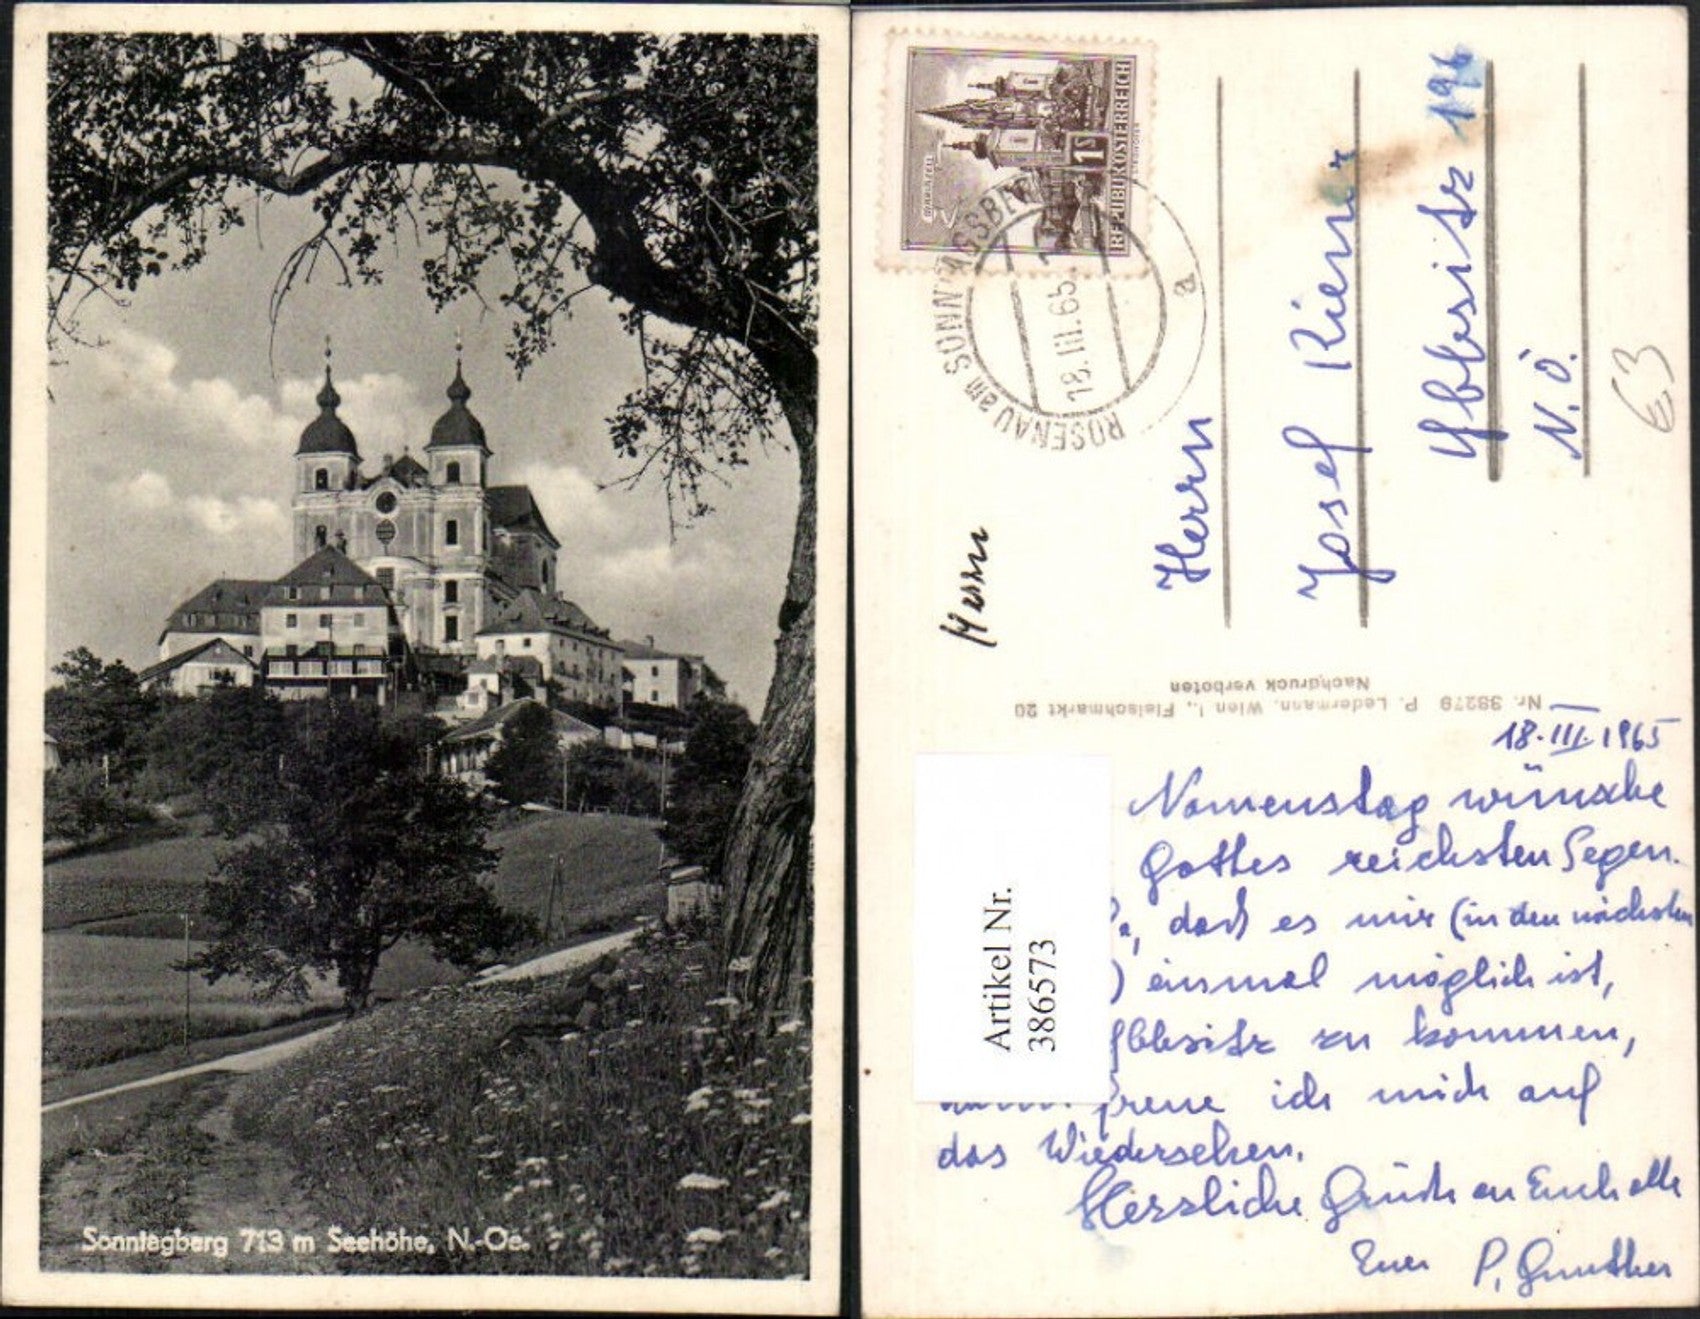 Sonntagberg 713 m Seehöhe, N.-Oe.
MARIAZELL
1 S
REPUBLIK ÖSTERREICH
ROSENAU am SONNTAGSBERG
18.III.65
a
Herrn
Herrn
Josef Riener
Ybbsitz 196
N.Ö.
€3
Nr. 38279 P. Ledermann, Wien I., Fleischmarkt 20
Nachdruck verboten
Artikel Nr.
386573
18.III.1965
Namenstag wünsche
Gottes reichsten Segen.
daß es mir (in den nächsten
) einmal möglich ist,
Ybbsitz zu kommen,
freue ich mich auf
das Wiedersehen.
Herzliche Grüße an Euch alle
Euer P. Gunther